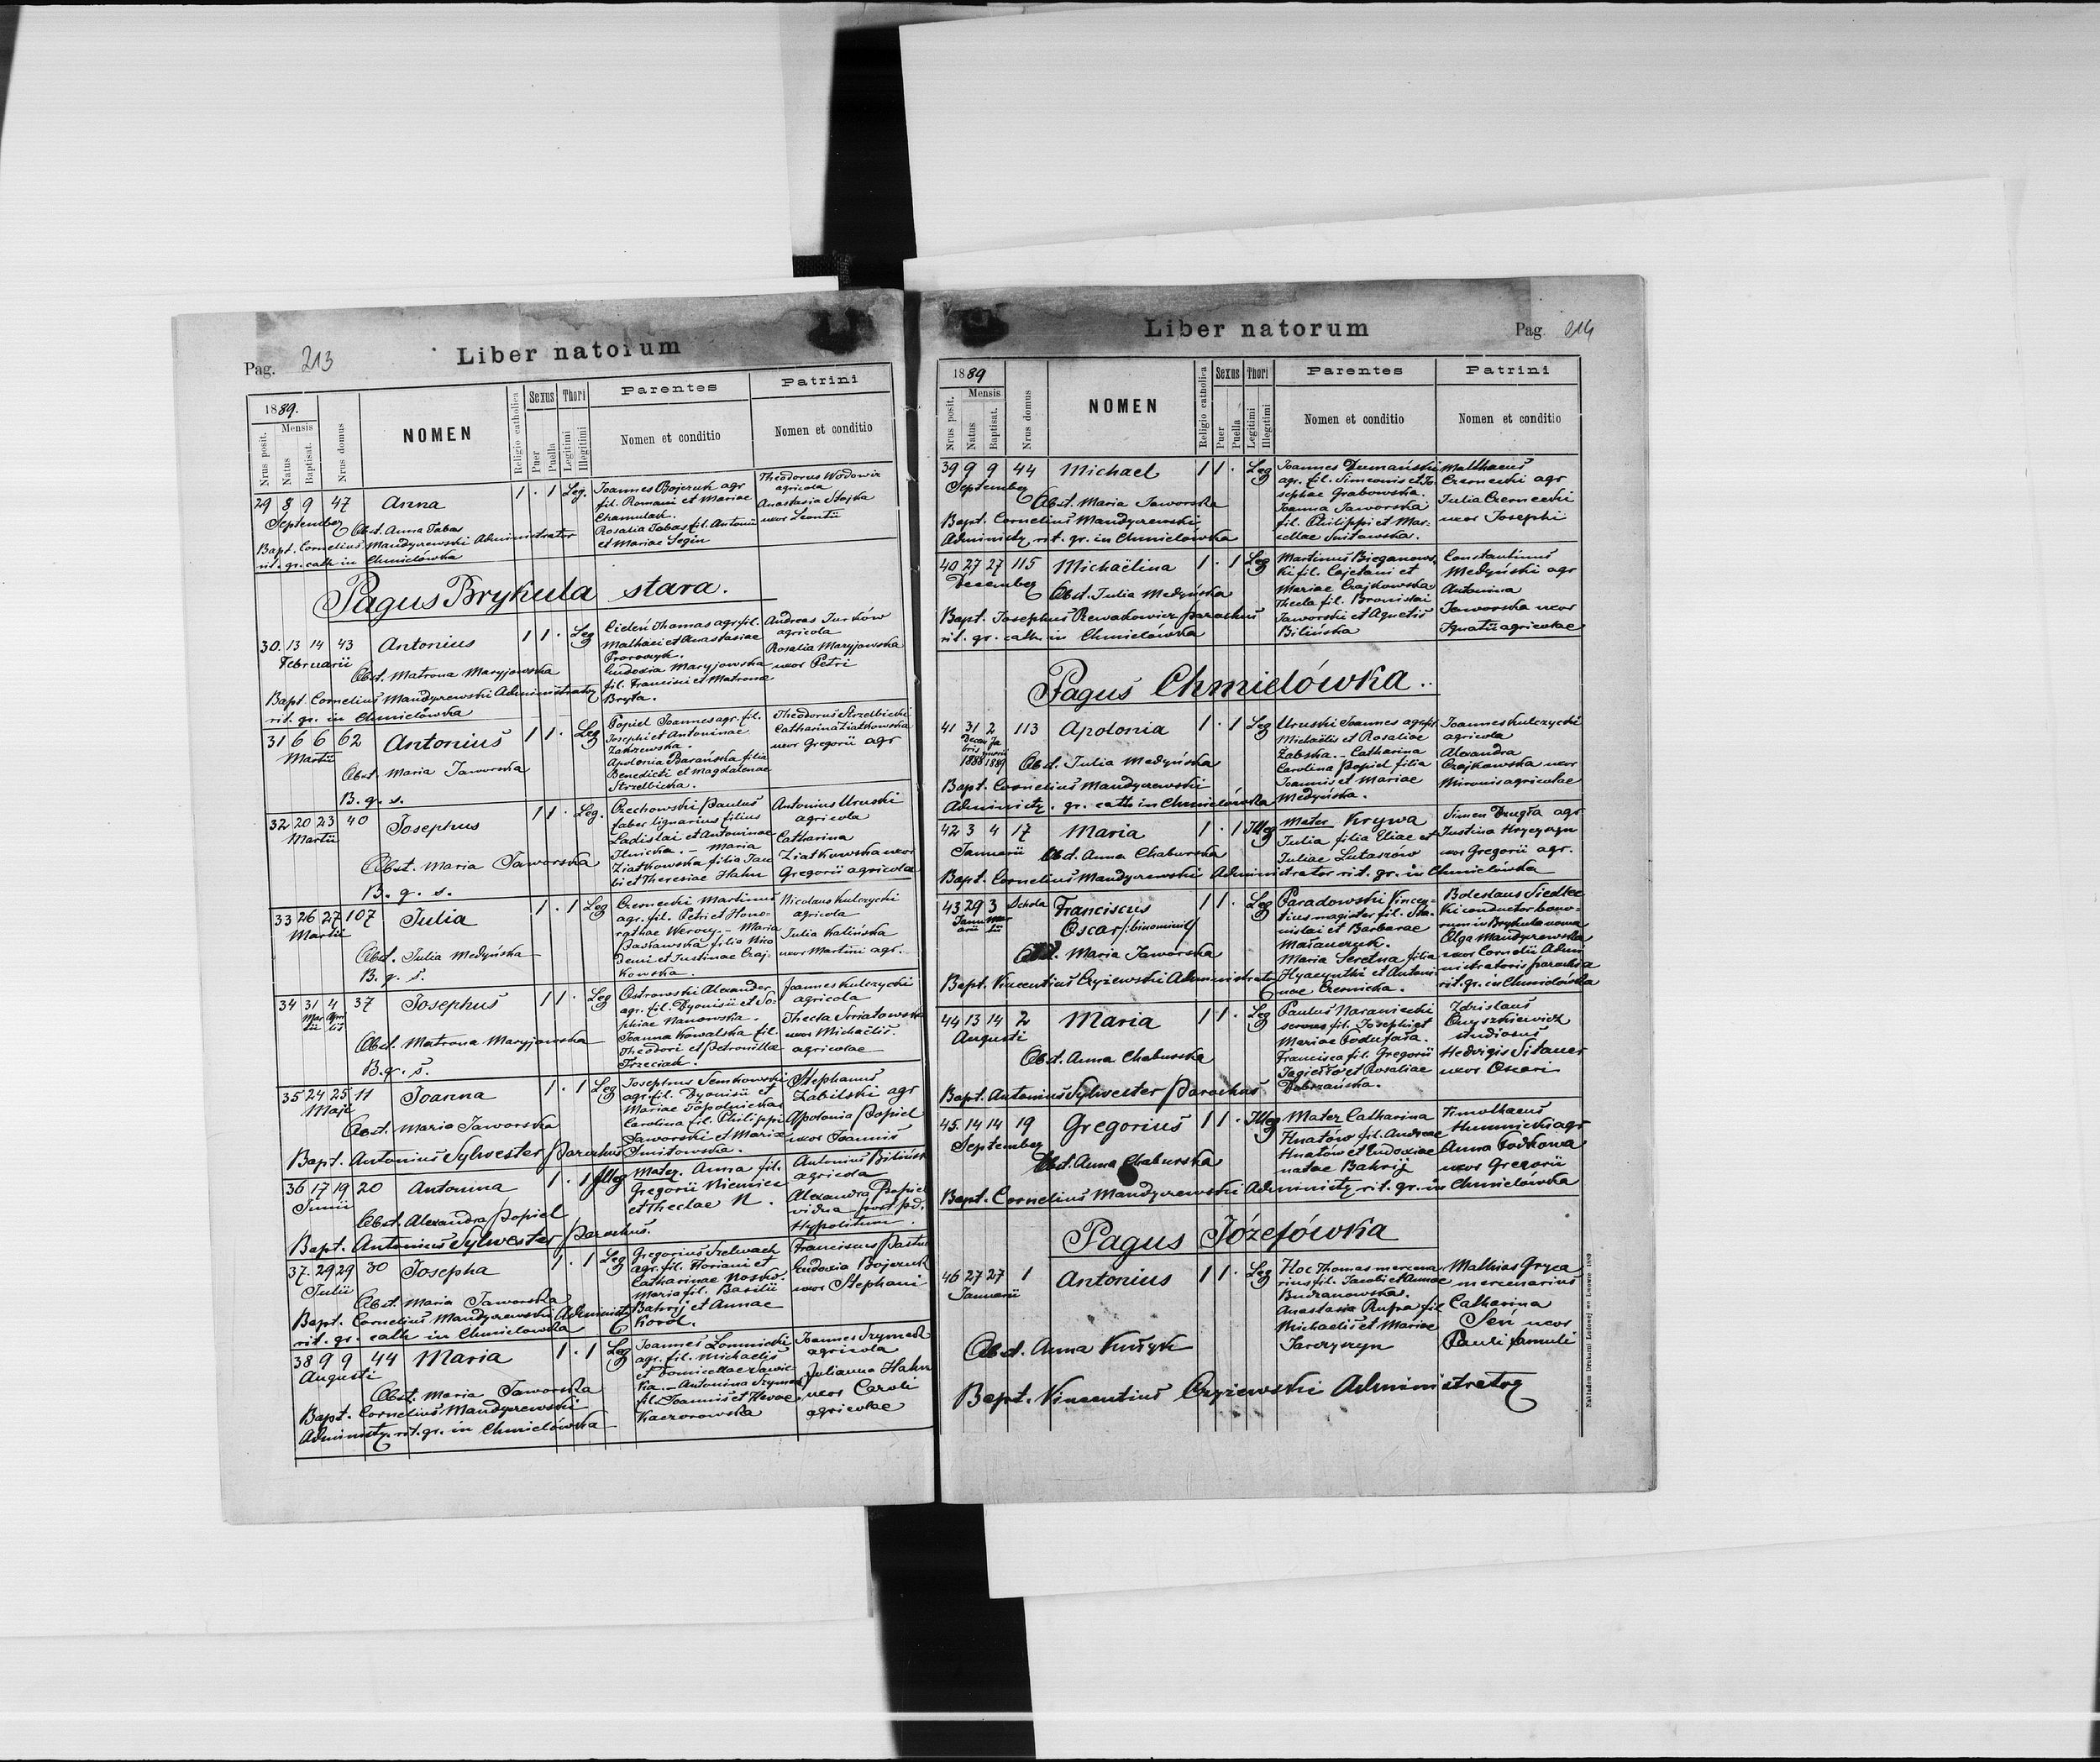 Pag. 213
Liber natorum
1889.
Nrus posit.
Mensis
Natus
Baptisat.
Nrus domus
NOMEN
Religio catholica
Sexus
Puer
Puella
Thori
Legitimi
Illegitimi
Parentes
Nomen et conditio
Patrini
Nomen et conditio
29 8 9 47 Anna 1 . 1 Leg.
September
Obst. Anna Tabas
Bapt. Cornelius Mandyczewski Administrator
rit. gr. cath in Chmielówka
Joannes Bojczuk agr
fil. Romani et Mariae
Rosalia Tabas fil. Antonii
et Mariae Segin
Theodorus Wodowiz
agricola
Anastasia Stojka
uxor Leontii
Pagus Brykula stara.
30. 13 14 43 Antonius 1 1 . Leg
Februarii
Obst. Matrona Maryjowska
Bapt Cornelius Mandyczewski Administrator
rit. gr. in Chmielówka
Cideń Thomas agr. fil.
Mathaei et Anastasiae
Eudoxia Maryjowska
fil. Francisci et Matronae
Bryła.
Andreas Jurków
agricola
Rosalia Maryjowska
uxor Petri
31 6 6 62 Antonius 1 1 . Leg
Martii
Obst. Maria Jaworska
B. q. s.
Popiel Joannes agr. fil.
Josephi et Antoninae
Zakrzewska.
Apolonia Barańska filia
Benedicti et Magdalenae
Strzelbicka.
Theodorus Strzelbicki
Catharina Ziatkowska
uxor Gregorii agr
32 20 23 40 Josephus 1 1 . Leg.
Martii
Obst. Maria Jaworska
B. q. s.
Czechowski Paulus
faber lignarius filius
Ladislai et Antoninae
Ilnicka. - Maria
Ziatkowska filia Jaco
bi et Theresiae Hahn
Antonius Uruski
agricola
Catharina
Ziatkowska uxor
Gregorii agricolae
33 26 27 107 Julia 1 . 1 Leg
Martii
Obst. Julia Medyńska
B. q. s.
Czernecki Martinus
agr. fil. Petri et Hono-
rathae Werozy. - Maria
Pasławska filia Nico
demi et Justinae Czaj-
kowska.
Nicolaus Kulczycki
agricola
Julia Kalińska
uxor Martini agr.
34 31 4 37 Josephus 1 1 . Leg
Mar Apri
tii lis
Obst. Matrona Maryjowska
B. q. s.
Ostrowski Alexander
agr. fil. Dyonisii et So-
phiae Nanowska.
Joanna Kowalska fil.
Theodori et Petronillae
Trzeciak.
Joannes Kulczycki
agricola
Thecla Smiatowska
uxor Michaëlis.
agricolae
35 24 25 11 Joanna 1 . 1 Leg
Maji
Obst. Maria Jaworska
Bapt. Antonius Sylwester Parochus
Josephus Semkowski
agr. fil. Dyonisii et
Mariae Topolnicka
Carolina fil. Philippi
Jaworski et Mariae
Smitowska.
Stephanus
Zabilski agr
Apolonia Popiel
uxor Joannis
36 17 19 20 Antonina 1 . 1 Illeg
Junii
Obst. Alexandra Popiel
Bapt. Antonius Sylwester Parochus.
Mater. Anna fil.
Gregorii Niemiec
et Theclae N.
Antonius Biliński
agricola
Alexandra Popiel
vidua post pd.
Hypolitum.
37. 29 29 30 Josepha 1 . 1 Leg
Julii
Obst. Maria Jaworska
Bapt. Cornelius Mandyczewski Administr
rit. gr. cath in Chmielowka
Gregorius Szelwach
agr. fil. Floriani et
Catharinae Nosko.
Maria fil. Basilii
Bahrij et Annae
Korol.
Franciscus Pastu
Eudoxia Bojczuk
uxor Stephani
38 9 9 44 Maria 1 . 1 Leg
Augusti
Obst. Maria Jaworska
Bapt. Cornelius Mandyczewski
Administr. rit. gr. in Chmielówka
Joannes Łomnicki
agr. fil. Michaelis
ka. - Antonina Szymek
fil. Joannis et Hevae
Kaczorowska
Joannes Szymek
agricola
Julianna Hahn
uxor Caroli
agricolae
Liber natorum
Pag. 214
1889
Nrus posit.
Mensis
Natus
Baptisat.
Nrus domus
NOMEN
Religio catholica
Sexus
Puer
Puella
Thori
Legitimi
Illegitimi
Parentes
Nomen et conditio
Patrini
Nomen et conditio
39 9 9 44 Michael 1 1 . Leg
September
Obst. Maria Jaworska
Bapt. Cornelius Mandyczewski
Administr. rit. gr. in Chmielówka
Joannes Dumański
agr. fil. Simeonis et Jo
sephae Grabowska.
Joanna Jaworska
fil. Philippi et Mar-
cellae Smitowska.
Matthaeus
Czernecki agr
Julia Czernecki
uxor Josephi
40 27 27 115 Michaëlina 1 . 1 Leg
December
Obst. Julia Medyńska
Bapt. Josephus Rewakowicz parochus
rit. gr. cath. in Chmielówka
Martinus Bieganows-
ki fil. Cajetani et
Mariae Czajkowska.
Thecla fil. Bronislai
Jaworski et Agnetis
Bilińska
Constantinus
Medyński agr
Antonina
Jaworska uxor
Ignatii agricolae
Pagus Chmielówka.
41 31 2 113 Apolonia 1 . 1 Leg
Decem Ja
bris nuarii
1888 1889
Obst. Julia Medyńska
Bapt. Cornelius Mandyczewski
Administr. gr. cath in Chmielówka
Uruski Joannes agr. fil.
Michaëlis et Rosaliae
Żabska. - Catharina
Carolina Popiel filia
Joannis et Mariae
Medyńska.
Joannes Kulczycki
agricola
Alexandra
Czajkowska uxor
Mironis agricolae
42 3 4 17 Maria 1 . 1 Illeg
Januarii
Obst. Anna Chaburska
Bapt. Cornelius Mandyczewski Administrator rit. gr. in Chmielówka
Mater Krywa
Julia filia Eliae et
Juliae Lutaszów
Simon Drugła agr
Justina Hrycyszyn
uxor Gregorii agr.
43 29 3 Schola Franciscus 1 1 . Leg
Janu Mar
arii tii
Oscar /:binominis/
Obst. Maria Jaworska
Bapt. Vincentius Czyżewski Administrator
Paradowski Vincen-
tius magister fil. Sta-
nislai et Barbarae
Małanczuk.
Maria Seretna filia
Hyacynthi et Antoni-
nae Czernicka.
Boleslaus Siedlec
ki conductor bono-
rum in Brykula nowa
Olga Mandyczewska
uxor Cornelii Admi
nistratoris parochia
rit. gr. in Chmielówka
44 13 14 2 Maria 1 1 . Leg
Augusti
Obst. Anna Chaburska
Bapt. Antonius Sylwester Parochus
Paulus Naraniecki
servus fil. Josephi et
Mariae Podufała.
Francisca fil. Gregorii
Jagiełło et Rosaliae
Dobrzańska.
Zdzislaus
Onyszkiewicz
studiosus
Hedvigis Sitauer
uxor Oscari
45. 14 14 19 Gregorius 1 1 . Illeg
September
Obst. Anna Chaburska
Bapt. Cornelius Mandyczewski Administr. rit. gr. in Chmielówka
Mater Catharina
Hnatów fil. Andreae
Hnatów et Eudoxiae
natae Bahrij
Timothaeus
Humnicki agr
Anna Fodkowa
uxor Gregorii
Pagus Józefówka
46 27 27 1 Antonius 1 1 . Leg
Januarii
Obst. Anna Kuśyk
Bapt. Vincentius Czyżewski Administrator
Hoc Thomas mercena
rius fil. Jacobi et Annae
Budzanowska.
Anastasia Rupa fil
Michaëlis et Mariae
Jarczyszyn
Mathias Gryca
mercenarius
Catharina
Seń uxor
Pauli famuli
Nakładem Drukarni Ludowej we Lwowie 1889